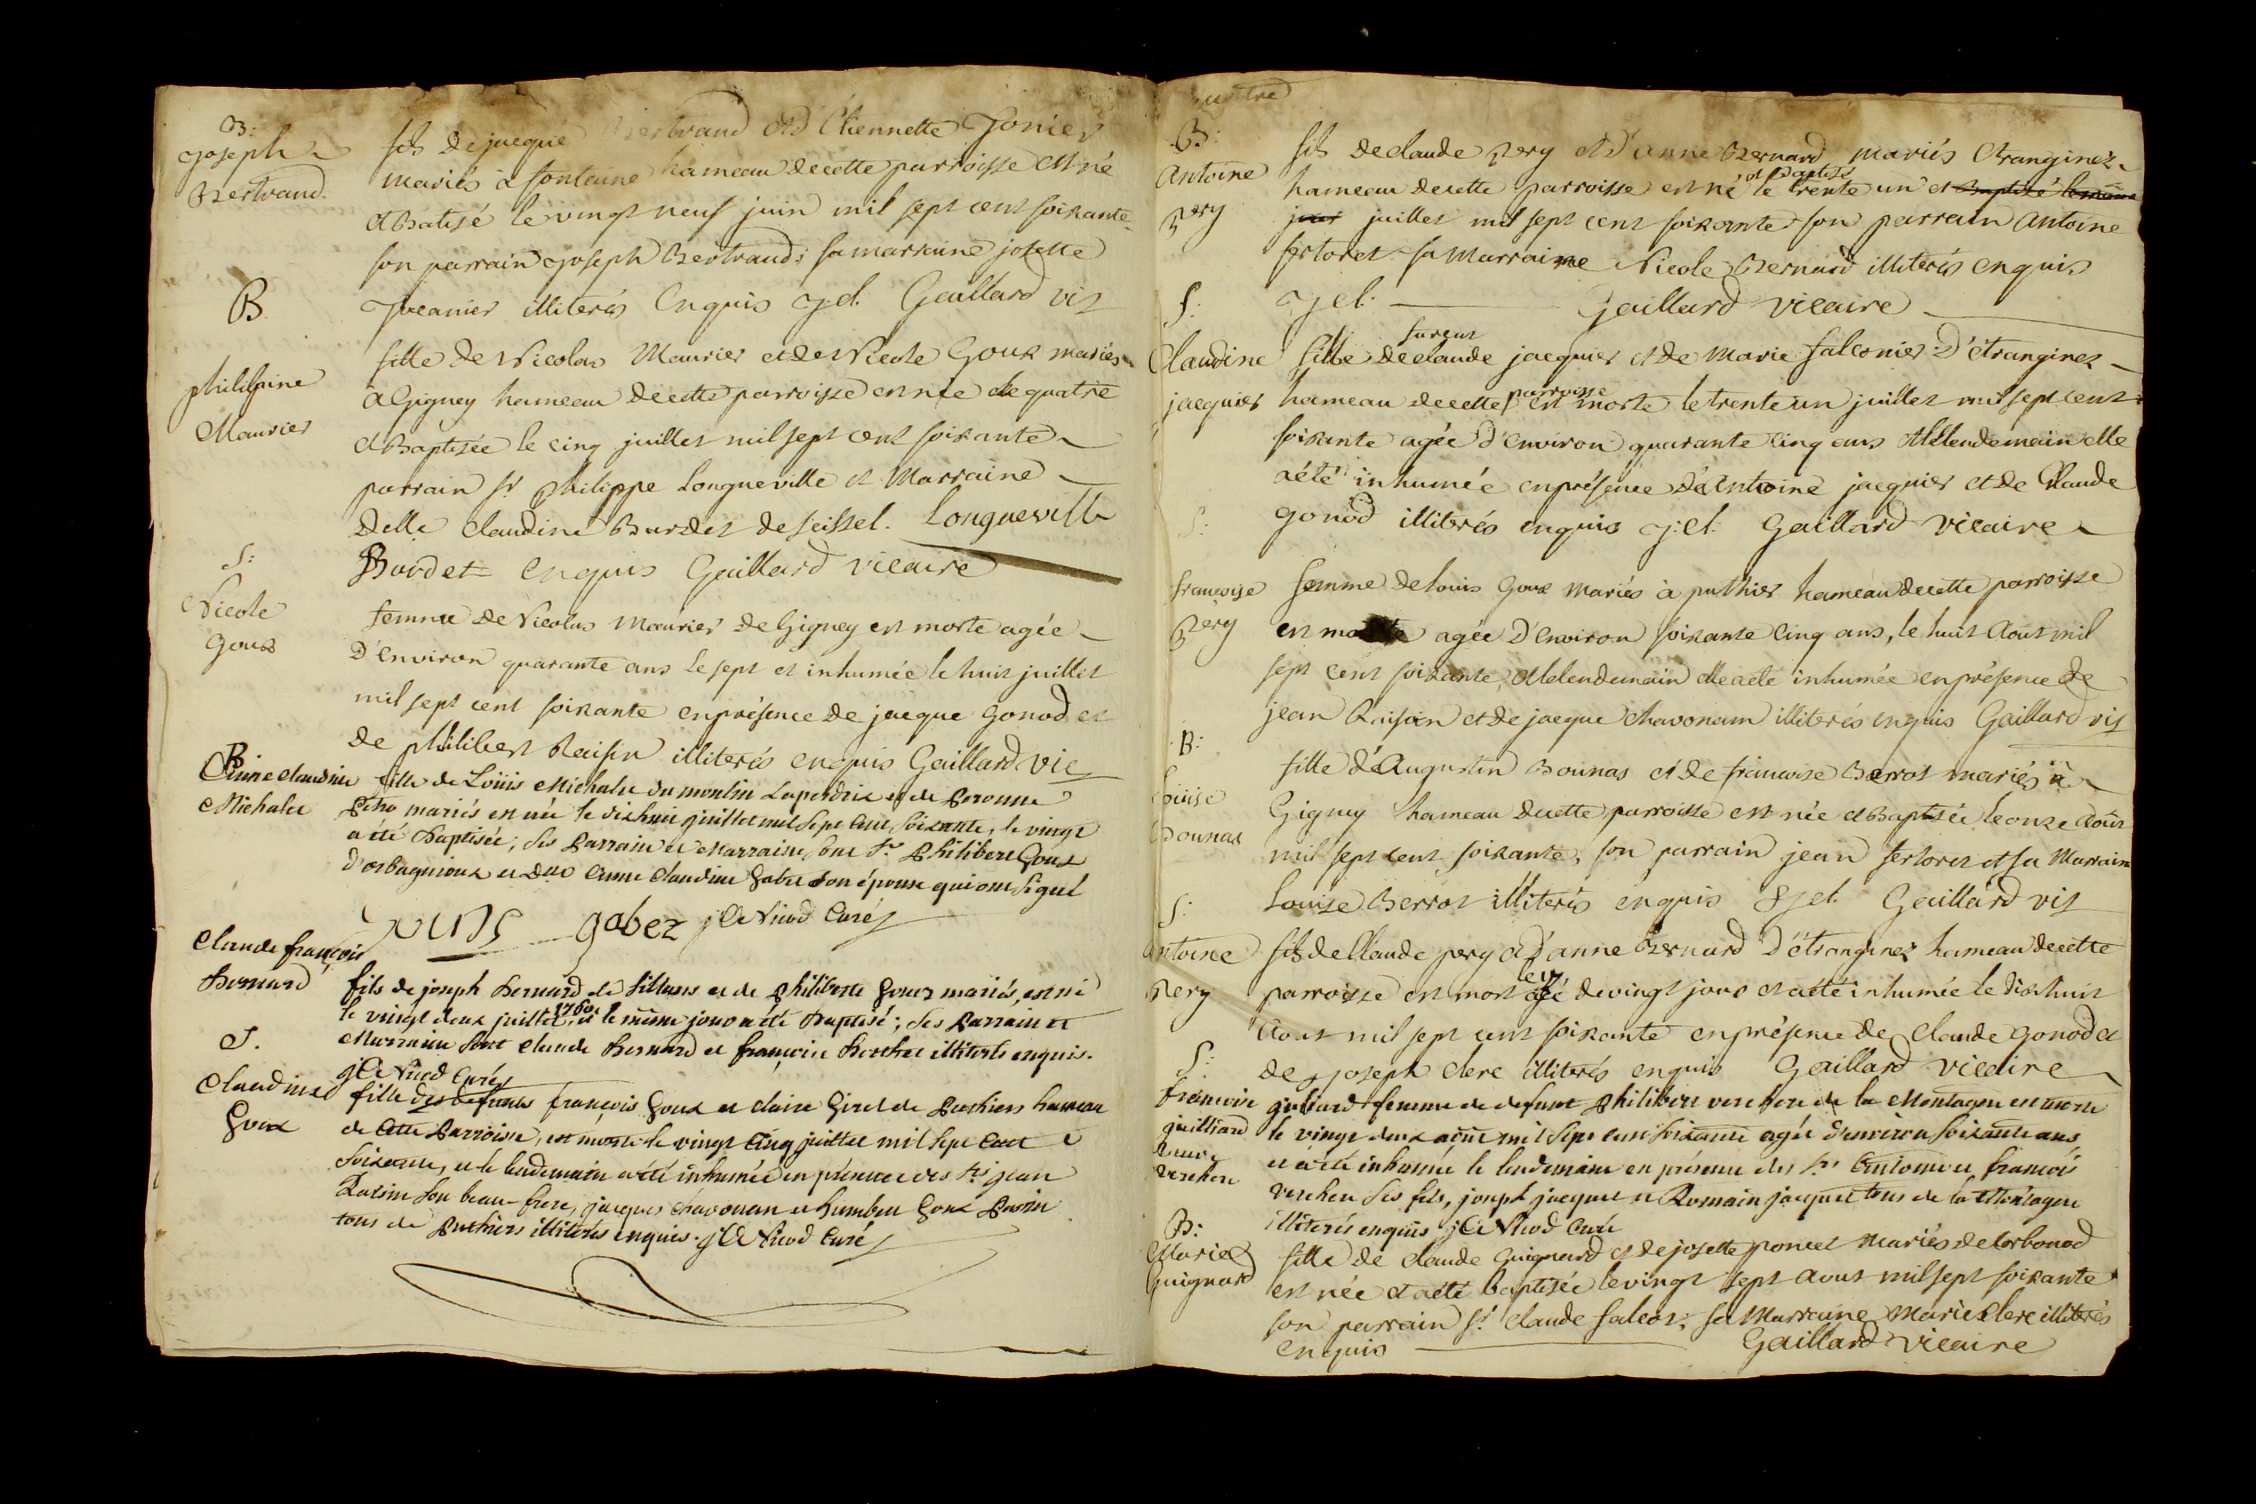 B:
joseph
Bertrand
fils de jacque Bertrand et d'Etiennette Jonier
mariés à fontaine hameau de cette parroisse est né
et Batisé le vingt neuf juin mil sept cent soixante
son parrain joseph Bertrand; sa marraine josette
illiterés Enquis J.el. Gaillard vis
B
philipine
Maurier
fille de Nicolas Maurier et de Nicole Goux mariés
à Gigney hameau de cette parroisse est née le quatre
et Baptisée le cinq juillet mil sept cent soixante
parrain sr philippe Longueville et Marraine
Delle Claudine Burdet de seissel. Longueville
Bordet Enquis Gaillard vicaire
S:
Nicole
Goux
femme de Nicolas Maurier de Gigney est morte agée
D'environ quarante ans le sept et inhumée le huit juillet
mil sept cent soixante en présence de jacque gonod et
de philibert Raisin illiterés enquis Gaillard vic
B
Anne claudine
Michalet
fille de Loüis Michalet du moulin Laperdrix et de Peronne
mariés est née le dixhuit juillet mil sept cent soixante, le vingt
a été Baptisée; ses Parrain et Marraine sont Sr. Philibert Goux
d'orbagnioux et Dlle Anne Claudine Gabet son épouse qui ont signé
Goux gabez j Ce Nicod Curé
Claude françois
Bernard
fils de joseph Bernard de Sillans et de Philiberte Goux mariés, est né
le vingt deux juillet 1760. et le même jour a été Baptisé; ses Parrain et
Marraine sont Claude Bernard et françoise Berthet illiterés enquis.
j Ce Nicod Curé
S.
Claudine
Goux
fille des defunts françois Goux et claire Girel de Puthiers hameau
de Cette Parroisse, est morte le vingt Cinq juillet mil Sept Cent
Soixante, et le lendemain a été inhumée en présence des srs jean
Raisin son beau-frere, jacques Chavonan et humbert Goux
tous de Puthiers illiterés enquis. j Ce Nicod Curé
B:
Antoine
Pery
fils de claude Pery et d'anne Bernard mariés Etranginez
et Baptisé
hameau de cette parroisse est né le trente un et Baptisé le même
jour juillet mil sept cent soixante son parrain Antoine
fertoret sa Marraine Nicole Bernard illiterés enquis
J el. Gaillard vicaire
S:
Claudine
jacquier
furent
fille de claude jacquier et de Marie falconier D'étranginez
parroisse
hameau de cette est morte le trente un juillet mil sept cent
soixante agée d'environ quarante cinq ans et le lendemain elle
a été inhumée en présence d'Antoine jacquier et de Claude
gonod illiterés enquis J:el. Gaillard vicaire
S:
francoise
Pery
femme de louis Goux mariés à puthier hameau de cette parroisse
est morte agée D'environ soixante cinq ans, le huit Aout mil
sept cent soixante, et le lendemain elle a été inhumée en présence de
jean Raisin et de jacque chavonam illiterés enquis Gaillard vis
B:
Loüise
Bounas
fille d'Augustin Bounas et de francoise Berrot mariés à
Gigney hameau de cette parroisse est née et Baptisée le onze Aoüt
mil sept cent soixante, son parrain jean fertoret et sa Marraine
Louise Berrot illiterés enquis & Jel. Gaillard vis
S:
Antoine
Pery
fils de Claude pery et d'anne Bernard D'étranginez hameau de cette
le 17
parroisse est mort agé de vingt jour et a été inhumée le Dixhuit
Aout mil sept cent soixante en présence de Claude gonod et
de joseph clerc illiterés enquis Gaillard vicaire
S:
francoise
guilliard
veuve
Verchere
guliard femme de defunt Philibert verchere de la Montagne est morte
le vingt deux aoüt mil Sept cent soixante agée d'environ soixante ans
et a été inhumée le lendemain en présence des srs Antoine et françois
verchere ses fils, joseph jacquet et Romain jacquet tous de la Montagne
illiterés enquis j Ce Nicod Curé
B:
Marie
Guignard
fille de claude Guignard et de josette poncet mariés de Corbonod
est née et a été Baptisée le vingt sept Aout mil sept soixante
son parrain sr. claude falcoz; sa Marraine Marie Clerc illiterés
enquis Gaillard vicaire